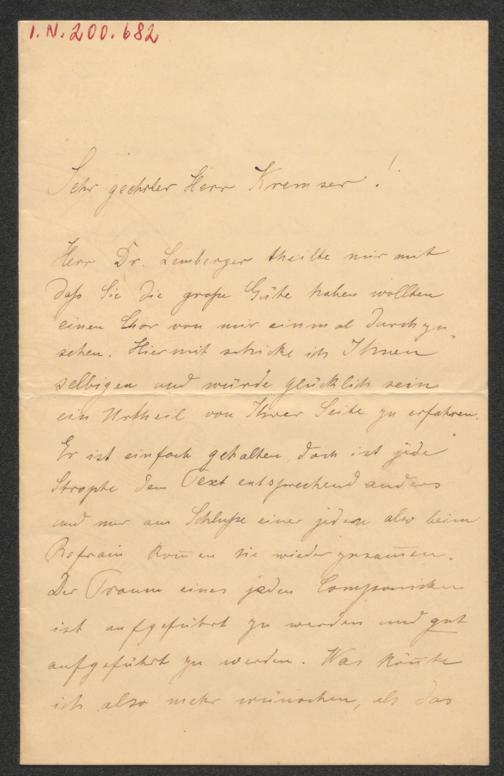 I.N. 200.682
Sehr geehrter Herr Kremser!
Herr Dr. Lemberger theilte mir mit
daß Sie die große Güte haben wollten
einen Chor von mir einmal durchzu-
sehen. Hiermit schicke ich Ihnen
selbigen und würde glücklich sein
ein Urtheil von Ihrer Seite zu erfahren.
Er ist einfach gehalten, doch ist jede
Strophe dem Text entsprechend anders
und nur am Schluße einer jeden also beim
Refrain kom̅en sie wieder zusam̅en.
Der Traum eines jeden Componisten
ist aufgeführt zu werden und gut
aufgeführt zu werden. Was könnte
ich also mehr wünschen, als das